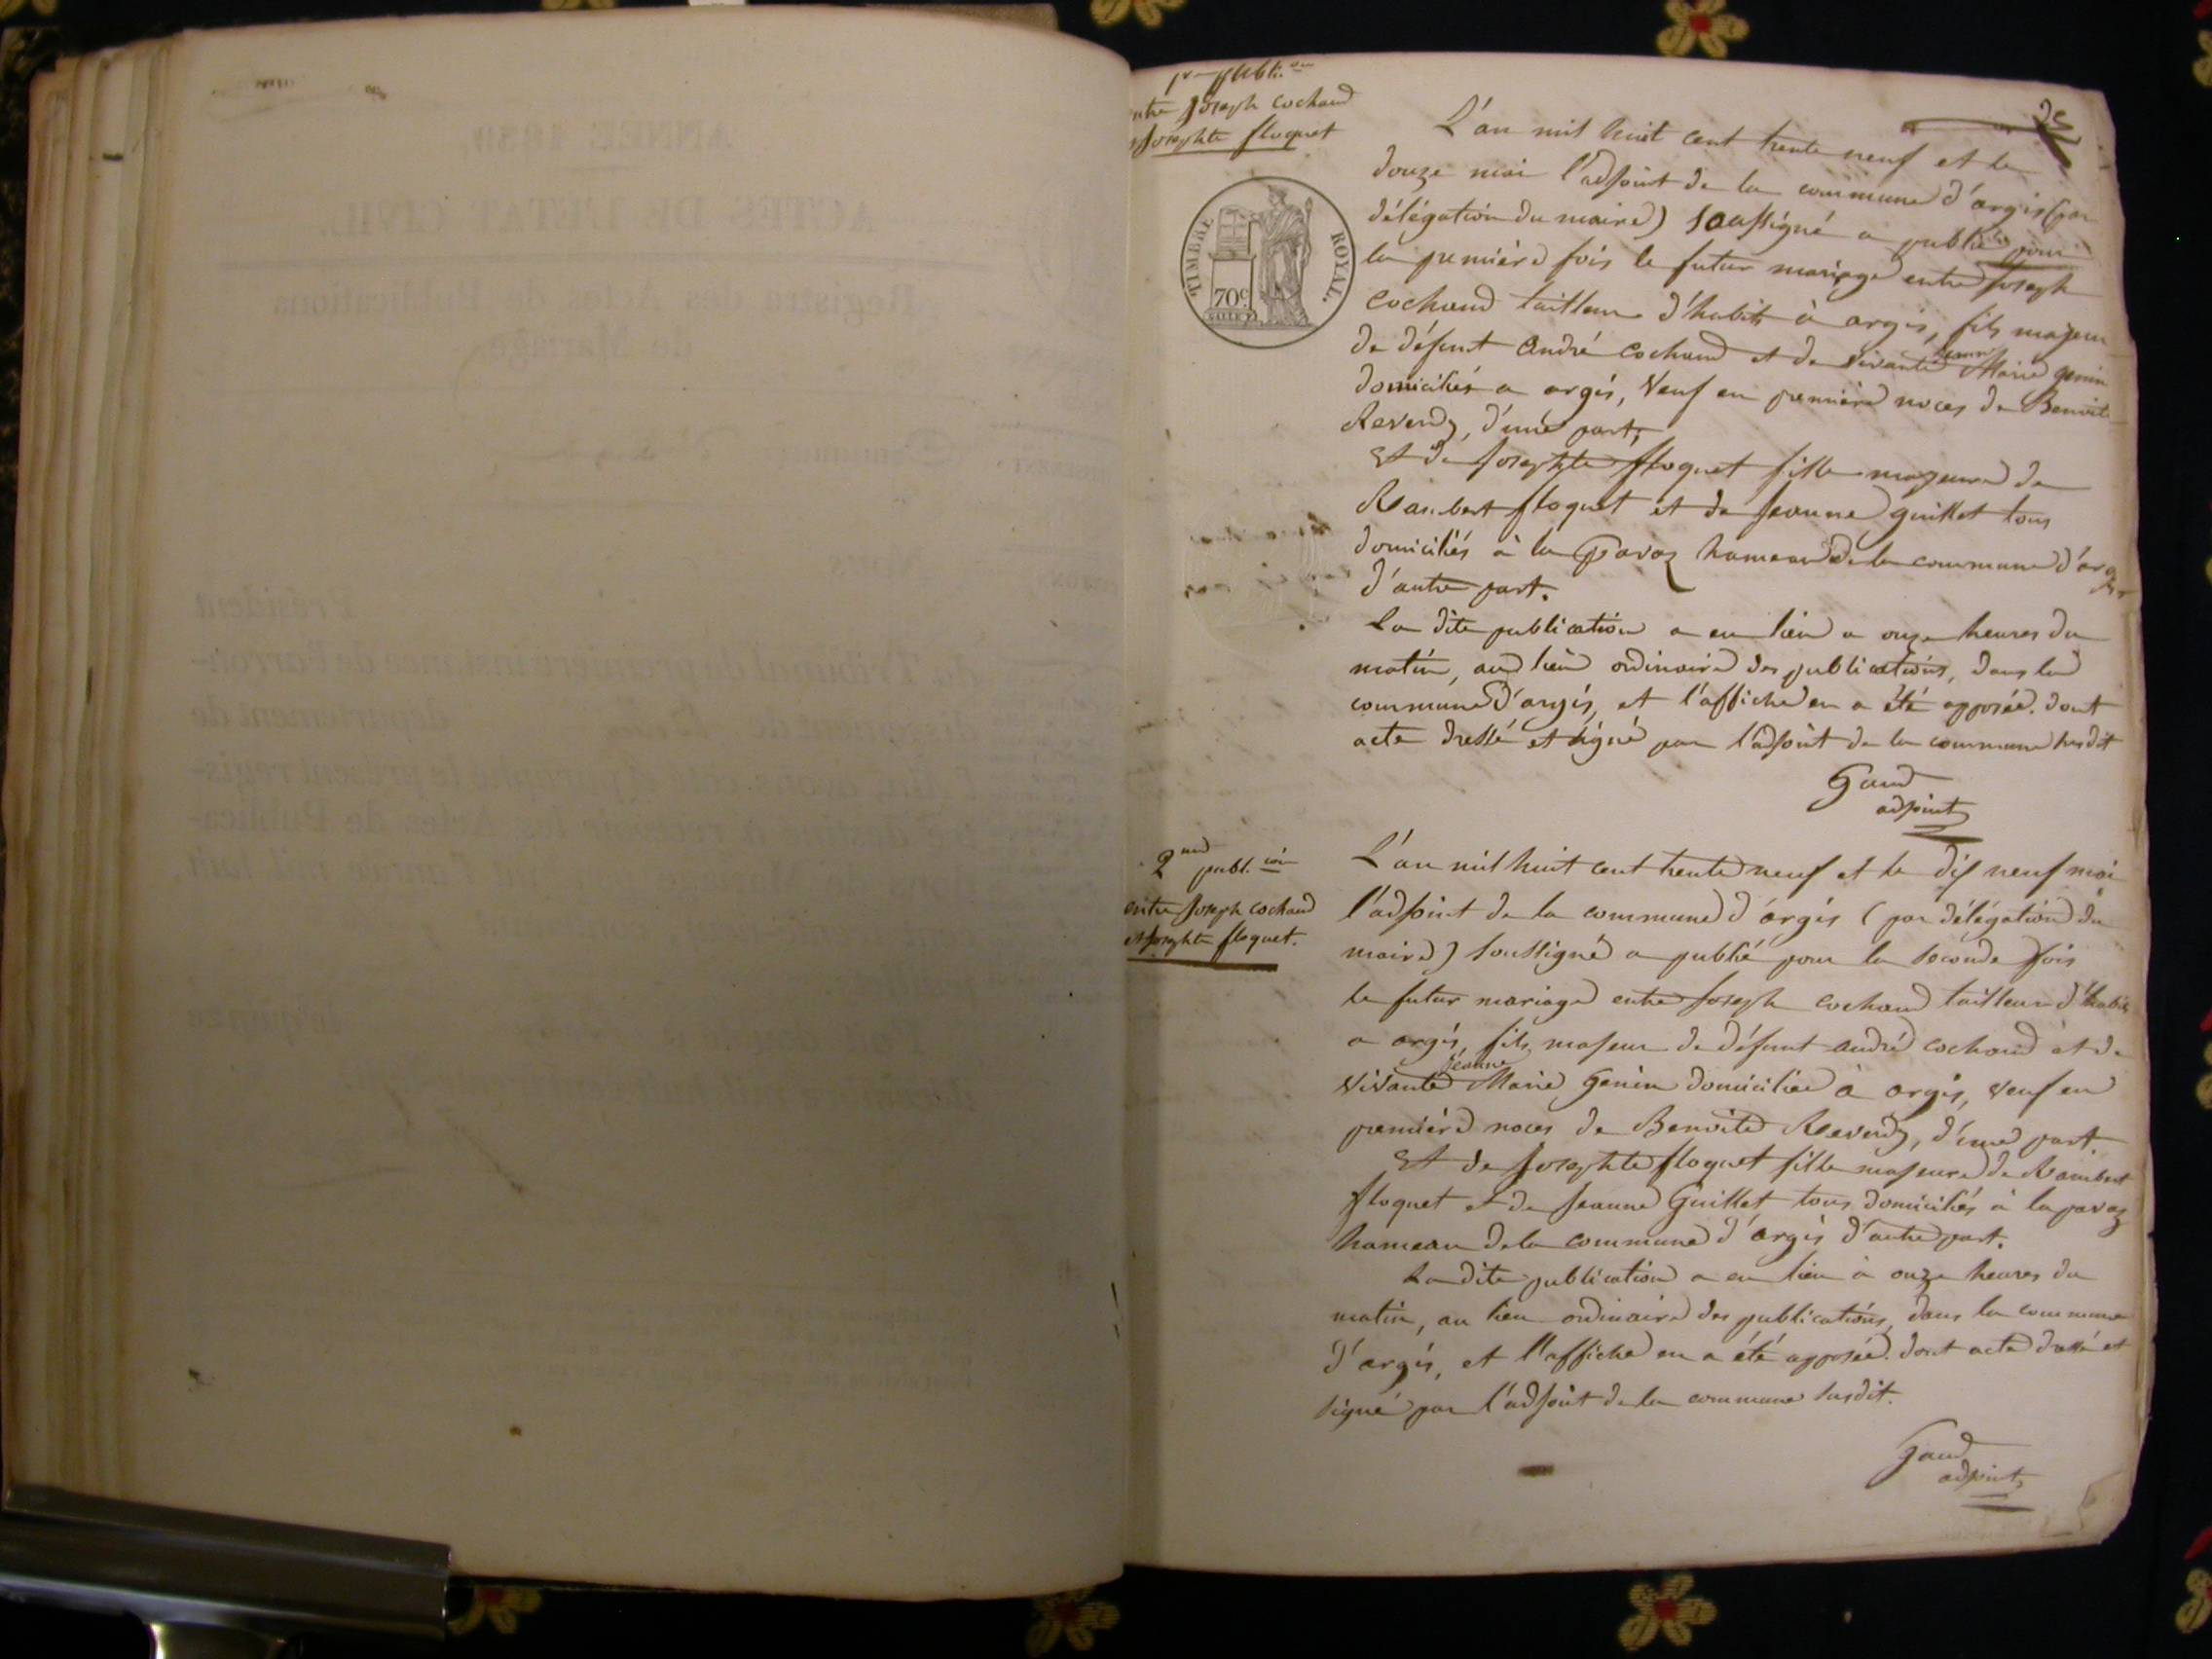 1re publi.on
entre Joseph Cochand
et Josephte floquet
TIMBRE ROYAL.
70c
L'an mil huit cent trente neuf et le
douze mai l'adjoint de la commune d'argis (par
délégation du maire) soussigné a publié pour
la première fois le futur mariage entre Joseph
Cochand tailleur d'habits à argis, fils majeur
de défunt André Cochand et de vivante Jeanne Marie genin
domiciliés a argis, Veuf en première noces de Benoite
Reverdy, d'une part,
Et de Josephte floquet fille majeure de
Rambert floquet et de Jeanne guillet tous
domiciliés à la Pavaz hameau de la commune d'argis
d'autre part.
La dite publication a eu lieu a onze heures du
matin, au lieu ordinaire des publications, dans la
commune d'argis, et l'affiche en a été apposée. dont
acte dressé et signé par l'adjoint de la commune susdit
Gaud
adjoint
2nd publ.ion
entre Joseph Cochand
et Josephte floquet.
L'an mil huit cent trente neuf et le dix neuf mai
l'adjoint de la commune d'argis (par délégation du
maire) soussigné a publié pour la seconde fois
le futur mariage entre Joseph Cochand tailleur d'habits
a argis, fils majeur de défunt andré Cochand et de
vivante Jeanne Marie Genin domiciliée à argis, veuf en
première noces de Benoite Reverdy, d'une part.
Et de Josephte floquet fille majeure de Rambert
floquet et de Jeanne Guillet tous domiciliés à la pavaz
hameau de la commune d'argis d'autre part.
La dite publication a eu lieu à onze heures du
matin, au lieu ordinaire des publications, dans la commune
d'argis, et l'affiche en a été apposée. dont acte dressé et
signé par l'adjoint de la commune susdit.
Gaud
adjoint